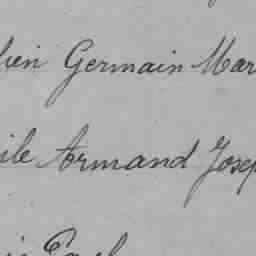 lien Germain Mar
ile Armand Josep